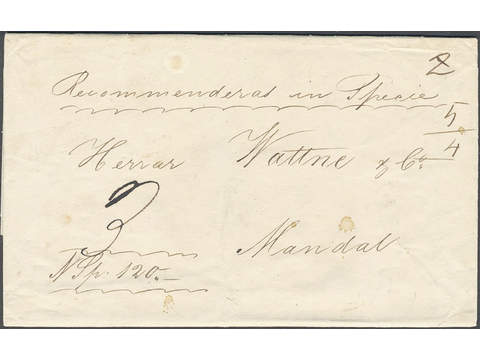 2
Recommenderas in Specie
5/4
Herrar Wattne & Co.
3
Mandal
NSp. 120.-